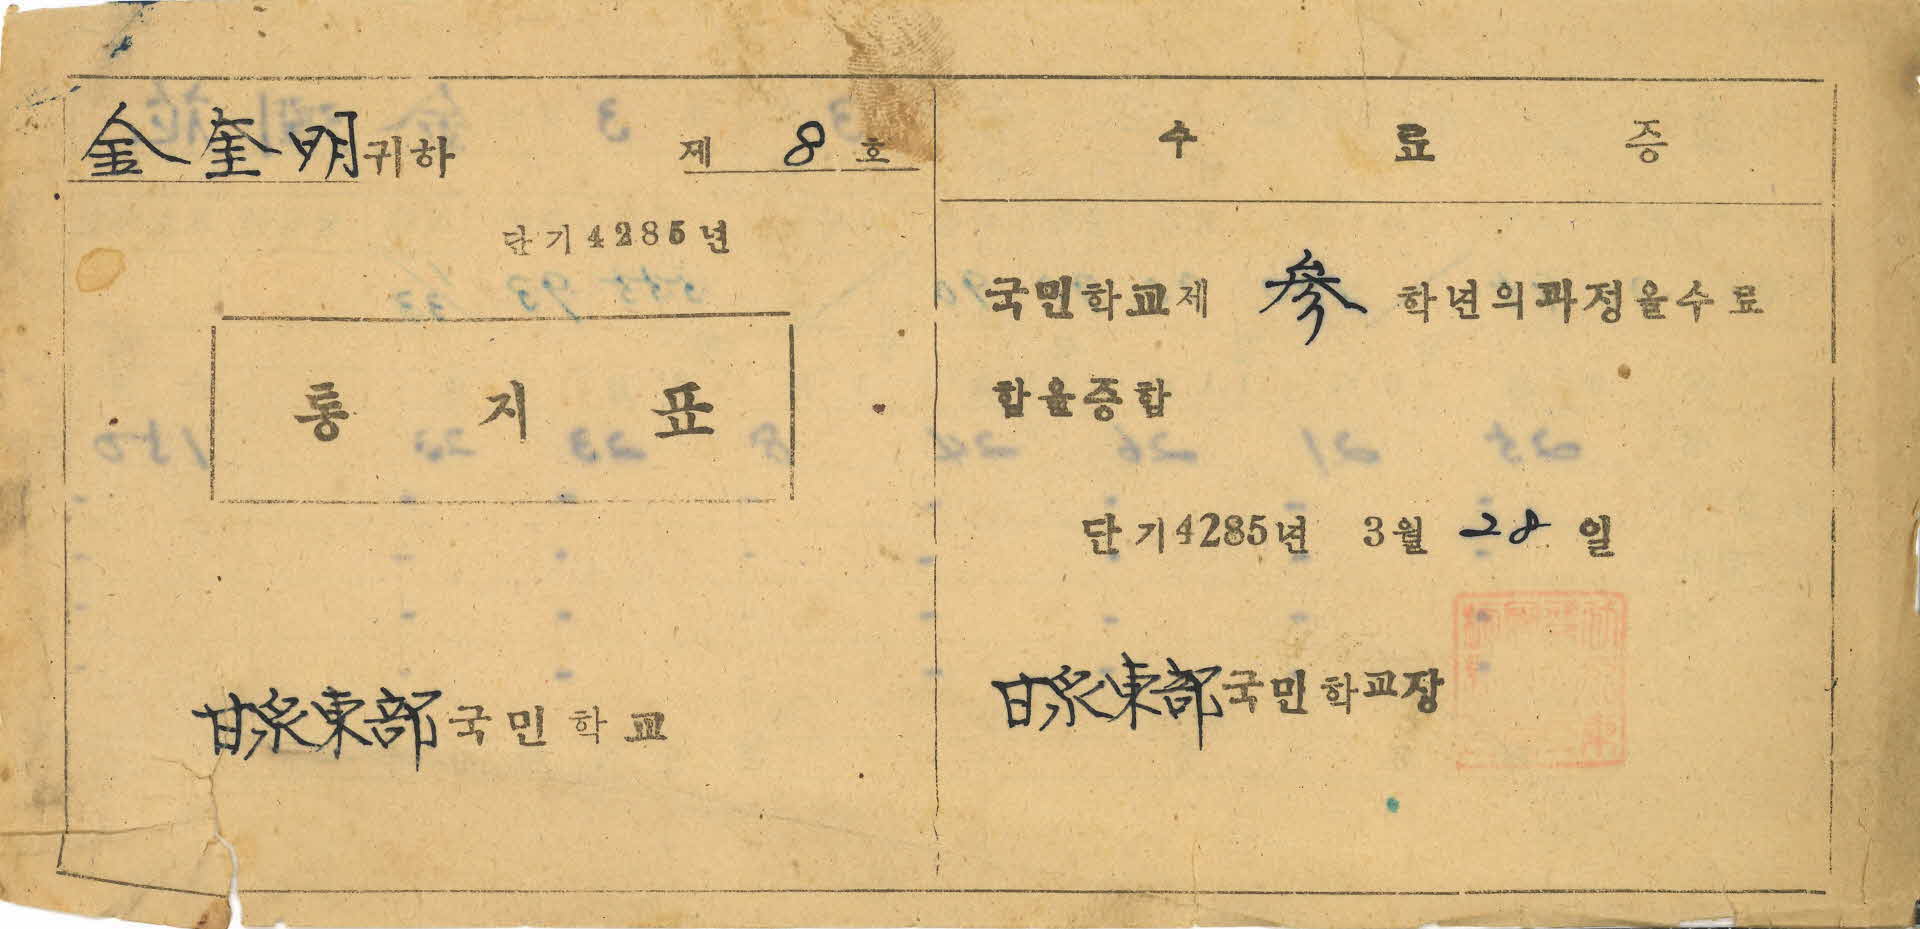 金奎明 귀하 제 8 호
단기4285년
통지표
甘泉東部국민학교
수료증
국민학교제 參 학년의과정을수료
합을증합
단기4285년 3월 28 일
甘泉東部국민학교장